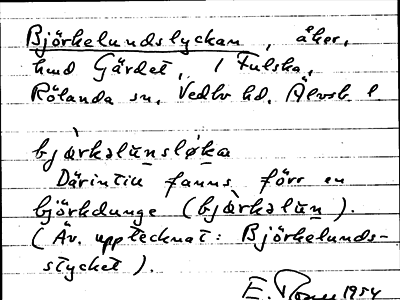 Björkelundslyckan, åker,
hmd Gärdet, i Fulska,
Rölanda sn, Vedbo hd, Älvsb. l
bjàrkəlu̲nsløk̲a
Därintill fanns förr en
björkdunge (bjàrkəlun̲).
(Äv. upptecknat: Björkelunds-
stycket).
E. 1954